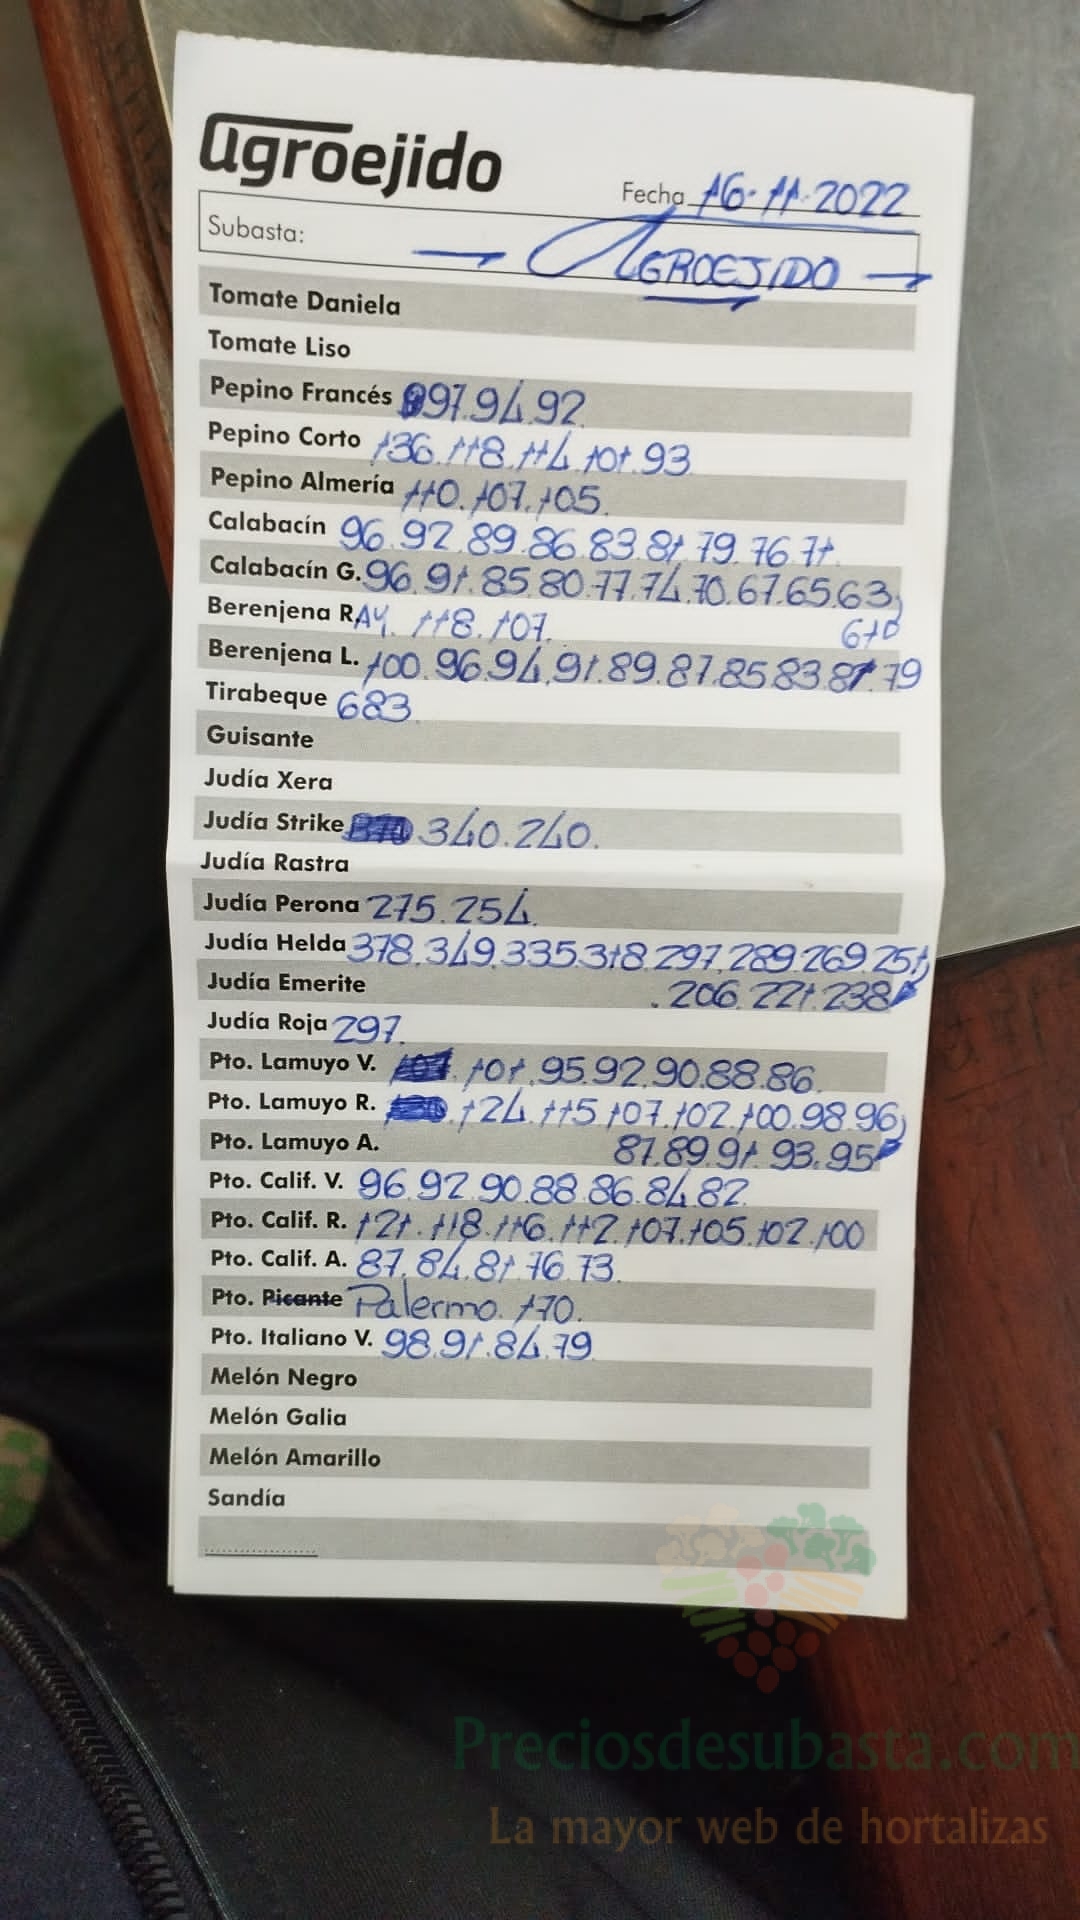 agroejido
Fecha 16-11-2022
Subasta: AGROEJIDO
Tomate Daniela
Tomate Liso
Pepino Francés 97.94.92
Pepino Corto 136.118.114.101.93
Pepino Almería 110.107.105.
Calabacín 96.92.89.86.83.81.79.76.71.
Calabacín G. 96.91.85.80.77.74.70.67.65.63
61
Berenjena RAY. 118.107.
Berenjena L. 100.96.94.91.89.87.85.83.81.79
Tirabeque 683.
Guisante
Judía Xera
Judía Strike 340.240.
Judía Rastra
Judía Perona 275.254.
Judía Helda 378.349.335.318.297.289.269.251
Judía Emerite .206.221.238
Judía Roja 297.
Pto. Lamuyo V. 101.95.92.90.88.86.
Pto. Lamuyo R. 124.115.107.102.100.98.96
Pto. Lamuyo A. 87.89.91.93.95
Pto. Calif. V. 96.92.90.88.86.84.82.
Pto. Calif. R. 121.118.116.112.107.105.102.100
Pto. Calif. A. 87.84.81.76.73.
Pto. Picante Palermo. 170.
Pto. Italiano V. 98.91.84.79
Melón Negro
Melón Galia
Melón Amarillo
Sandía
Preciosdesubasta.com
La mayor web de hortalizas